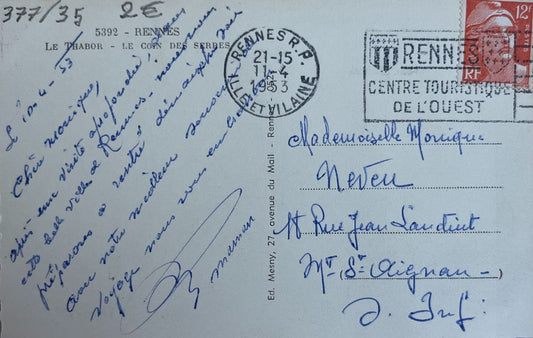 377/35 2€
5392 - RENNES
LE THABOR - LE COIN DES SERRES
Le 10-4-53
Chère monique,
après une visite approfondie, dans
cette belle ville de Rennes - nous nous
préparons à rentré
avec notre meilleur souvenir
voyage nous vous
maman
Ed. Mesny, 27, avenue du Mail - Rennes
RENNES R.P.
21-15
11-4
1953
ILLE-ET-VILAINE
RENNES
CENTRE TOURISTIQUE
DE L'OUEST
12F
RF
Mademoiselle Monique
Neveu
Rue Jean
Mt St Aignan -
S. Inf.